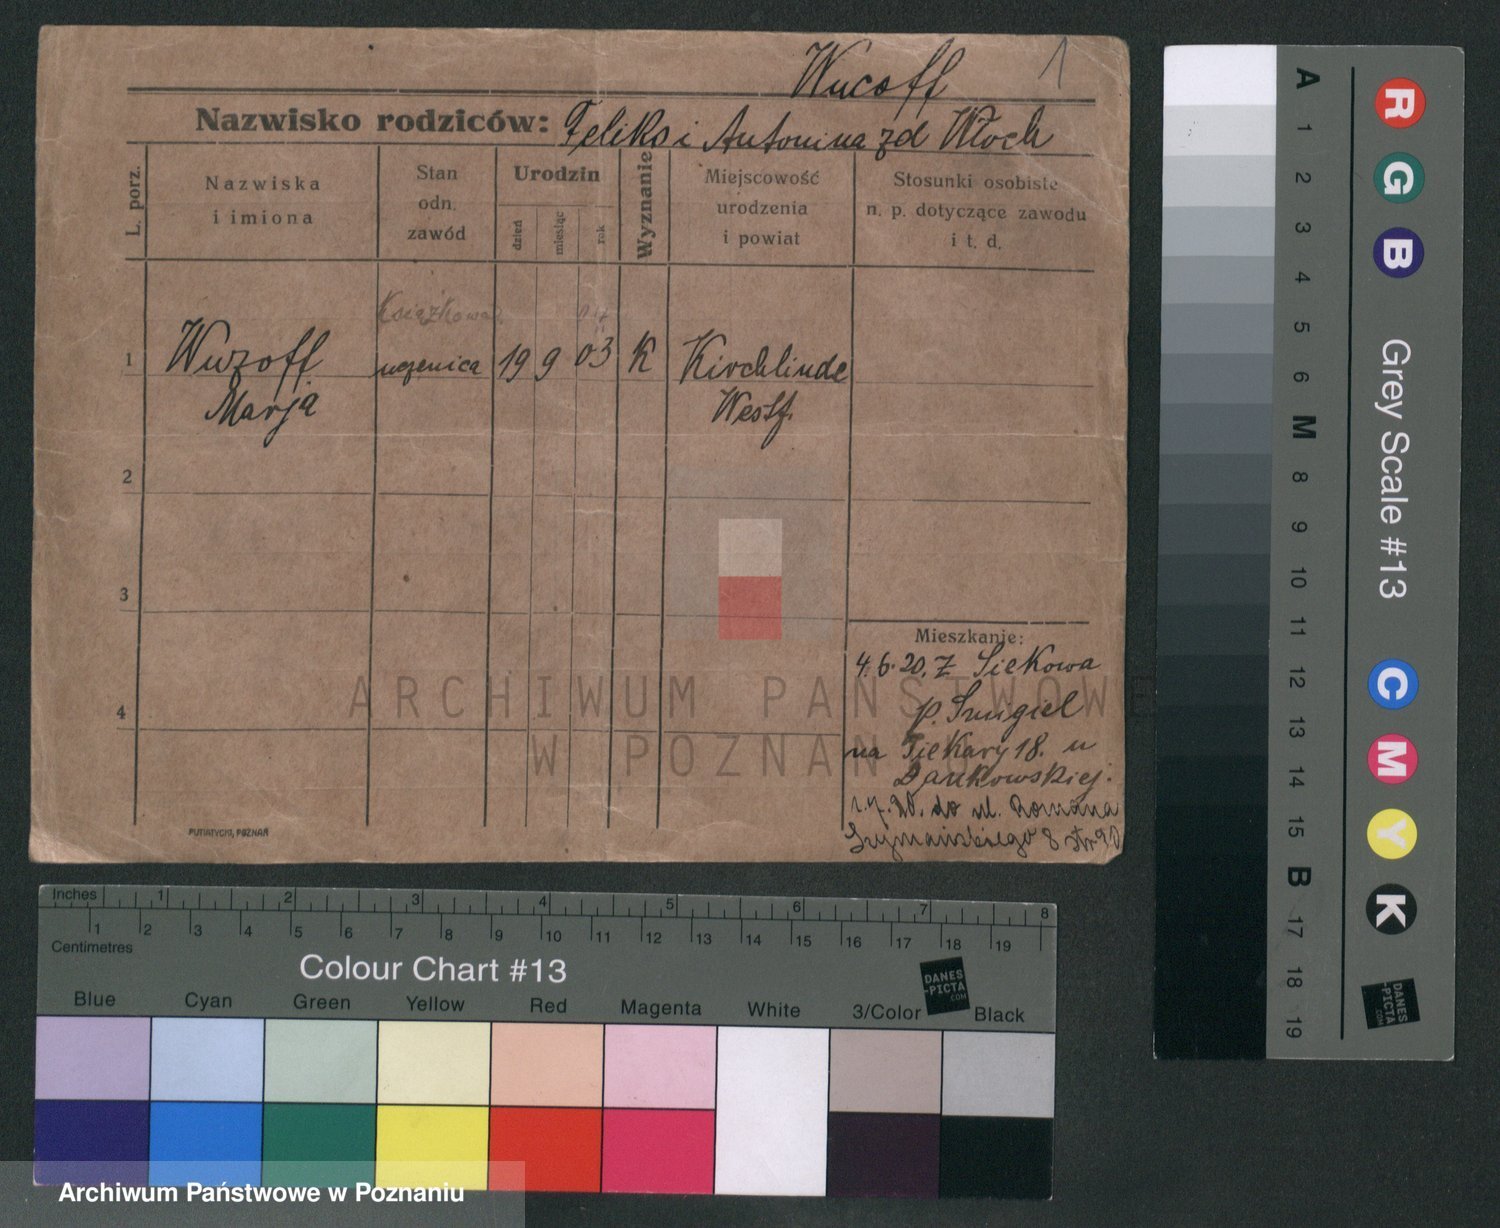 Wucoff 1
Nazwisko rodziców: Feliks i Antonina zd Włoch
L. porz.
Nazwiska
i imiona
Stan
odn.
zawód
Urodzin
dzień
miesiąc
rok
Wyznanie
Miejscowość
urodzenia
i powiat
Stosunki osobiste
n. p. dotyczące zawodu
i t. d.
Książkowa 04
1 Wuzoff uczenica 19 9 03 K Kirchlinde
Marja Westf.
2
3
4
Mieszkanie:
4.6.20. Z Siekowa
p. Szmigiel
na Piekary 18. u
Dankowskiej.
1.7.20. do ul. Romana
Szymańskiego 8 str 90
PUTIATYCKI, POZNAŃ
ARCHIWUM PAŃSTWOWE
W POZNANIU
Inches 1 2 3 4 5 6 7 8
1 2 3 4 5 6 7 8 9 10 11 12 13 14 15 16 17 18 19
Centimetres
Colour Chart #13
DANES
-PICTA
.COM
Blue Cyan Green Yellow Red Magenta White 3/Color Black
Archiwum Państwowe w Poznaniu
A 1 2 3 4 5 6 M 8 9 10 11 12 13 14 15 B 17 18 19
R G B
Grey Scale #13
C M Y K
DANES
-PICTA
.COM